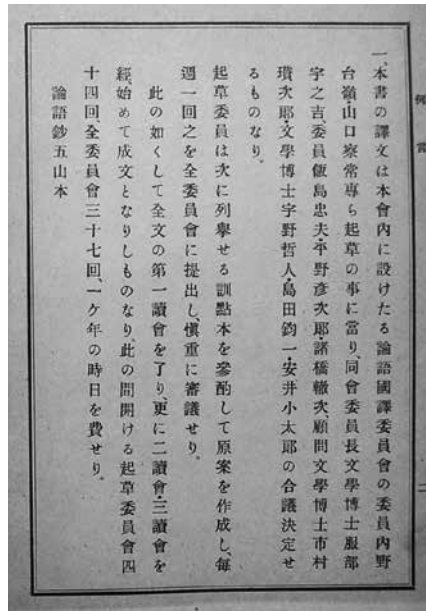 例言
二
一、本書の譯文は本會內に設けたる論語國譯委員會の委員內野
台嶺・山口察常專ら起草の事に當り、同會委員長文學博士服部
宇之吉、委員飯島忠夫・平野彥次郎・諸橋轍次、顧問文學博士市村
瓚次郎・文學博士宇野哲人・島田鈞一・安井小太郎の合議決定せ
るものなり。
起草委員は次に列擧せる訓點本を參酌して原案を作成し、每
週一回之を全委員會に提出し、愼重に審議せり。
此の如くして全文の第一讀會を了り、更に二讀會・三讀會を
經、始めて成文となりしものなり、此の間開ける起草委員會四
十四回、全委員會三十七回、一ケ年の時日を費せり。
論語鈔五山本